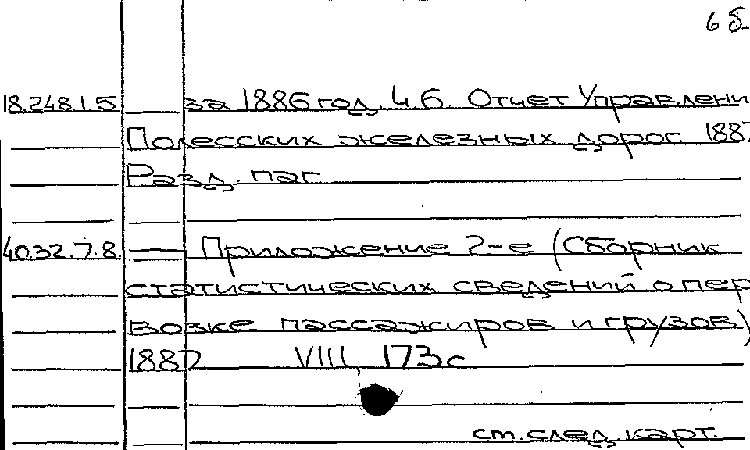 6 б
18.248.1.5 за 1886 год. Ч.6. Отчет Управлени
Полесских железных дорог. 1887
Разд. паг.
40.32.7.8. — Приложение 2-е (Сборник
статистических сведений о пер
возке пассажиров и грузов)
1887 VIII, 173 с
см. след. карт.